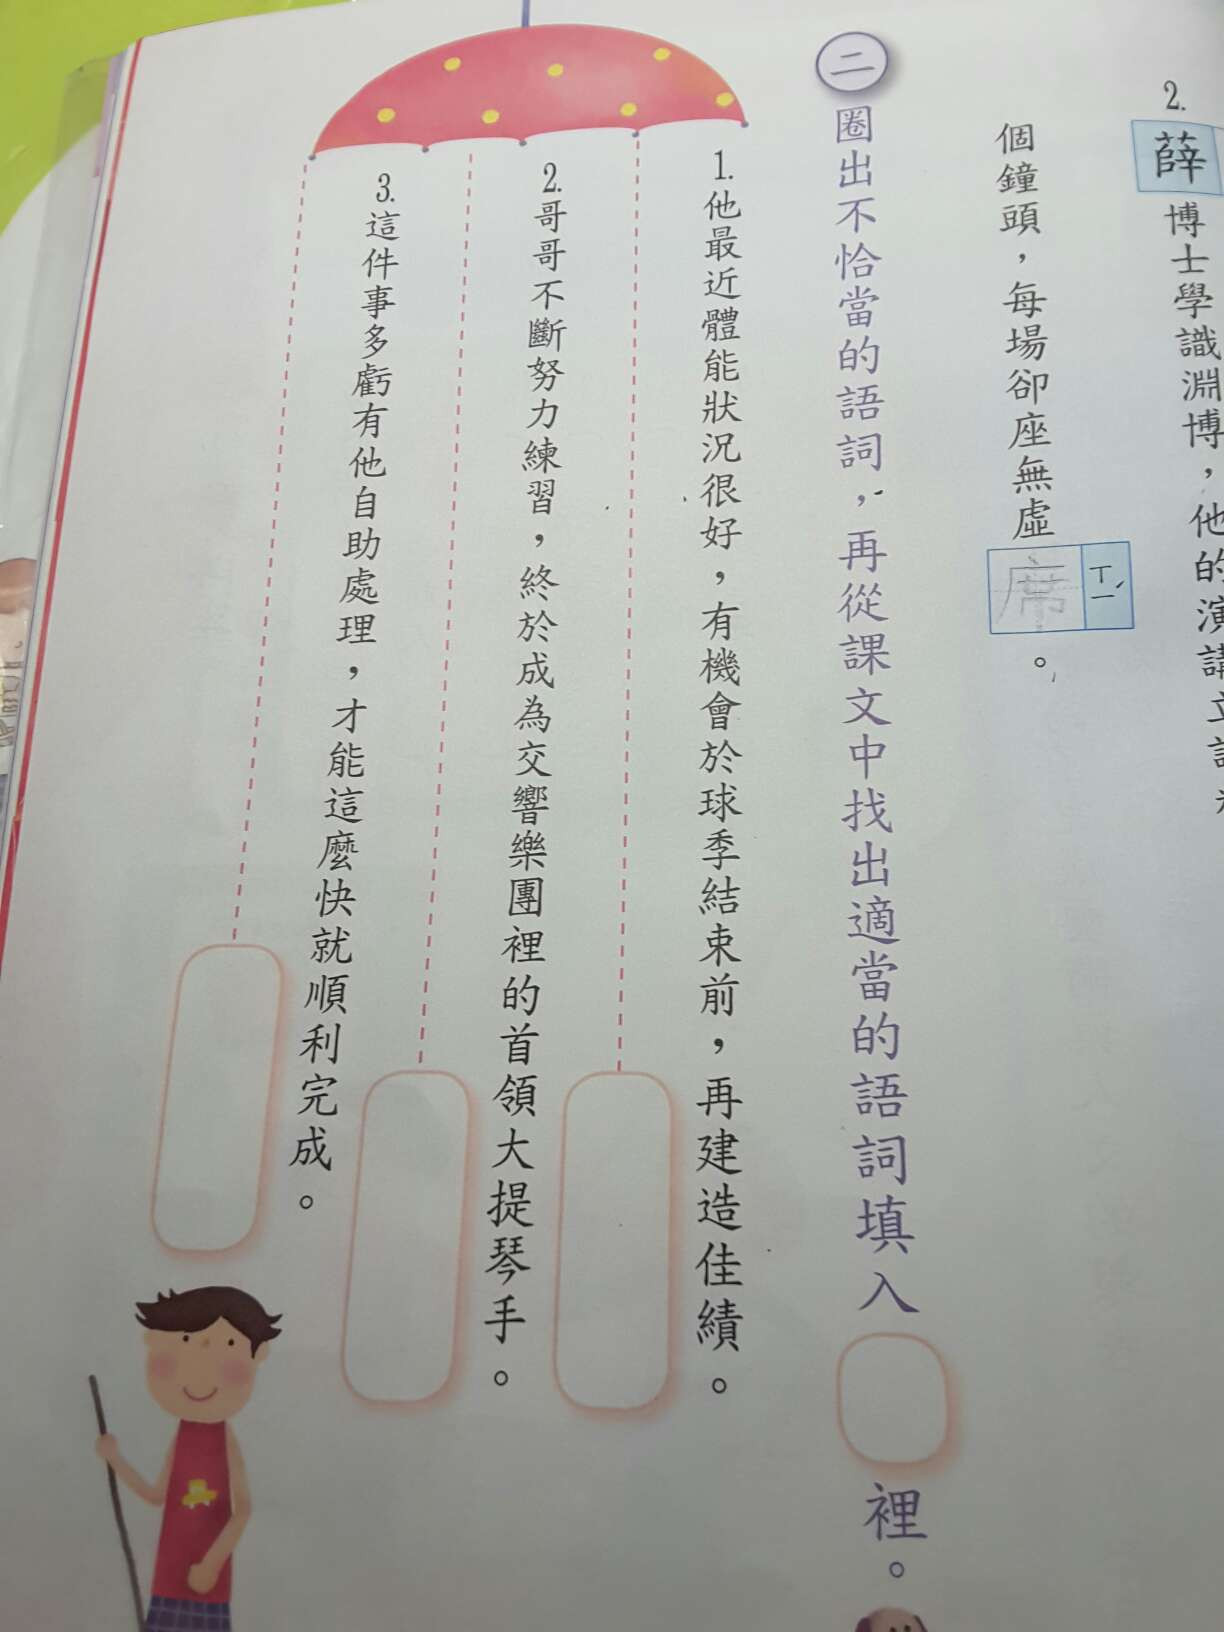 2.薛博士學識淵博，他的演講
個鐘頭，每場卻座無虛席ㄒㄧˊ。
二 圈出不恰當的語詞，再從課文中找出適當的語詞填入裡。
1.他最近體能狀況很好，有機會於球季結束前，再建造佳績。
2.哥哥不斷努力練習，終於成為交響樂團裡的首領大提琴手。
3.這件事多虧有他自助處理，才能這麼快就順利完成。